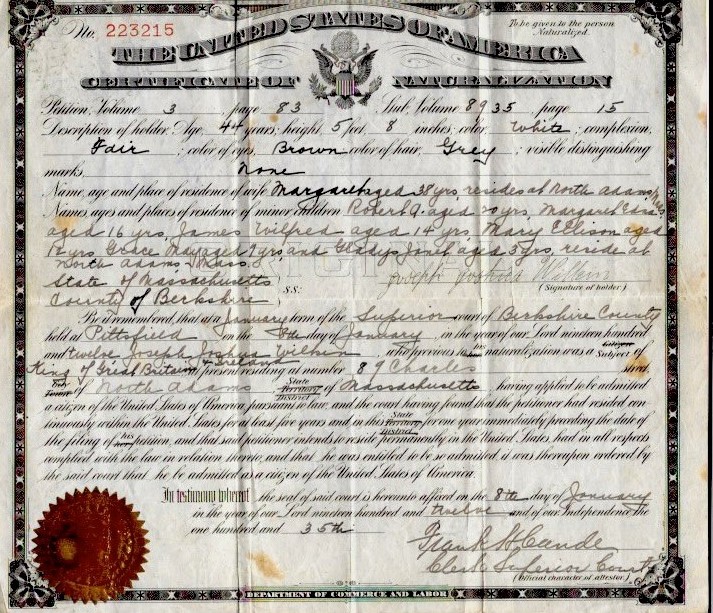 No. 223215
To be given to the person Naturalized.
THE UNITED STATES OF AMERICA
CERTIFICATE OF NATURALIZATION
Petition, Volume 3, page 83 Stub, Volume 8935, page 15
Description of holder: Age, 44 years; height, 5 feet, 8 inches; color, White; complexion,
Fair; color of eyes, Brown color of hair, Grey; visible distinguishing
marks, None
Name, age and place of residence of wife Margaret aged 38 yrs, resides at North Adams, Mass.
Names, ages and places of residence of minor children Robert J. aged 20 yrs, Margaret
aged 16 yrs, James Wilfred aged 14 yrs, Mary C Elison aged
12 yrs, Grace May aged 7 yrs and Gladys Janet aged 3 yrs, reside at
North Adams, Mass.
State of Massachusetts
County of Berkshire S.S:
Joseph Joshua
(Signature of holder)
Be it remembered, that at a January term of the Superior court of Berkshire County
held at Pittsfield on the 8th day of January, in the year of our Lord nineteen hundred
and twelve Joseph Joshua, who previous to his naturalization was a Citizen Subject of
King of Great Britain & Ireland present residing at number 89 Charles street,
City Town of North Adams State Territory District of Massachusetts, having applied to be admitted
a citizen of the United States of America pursuant to law, and the court having found that the petitioner had resided con-
tinuously within the United States for at least five years and in this State Territory District for one year immediately preceding the date of
the filing of his petition, and that said petitioner intends to reside permanently in the United States, had in all respects
complied with the law in relation thereto, and that he was entitled to be so admitted, it was thereupon ordered by
the said court that he be admitted as a citizen of the United States of America.
In testimony whereof the seal of said court is hereunto affixed on the 8th day of January
in the year of our Lord nineteen hundred and twelve and of our Independence the
one hundred and 35th
Frank H Cande
Clerk Superior Court
(Official character of attestor.)
DEPARTMENT OF COMMERCE AND LABOR